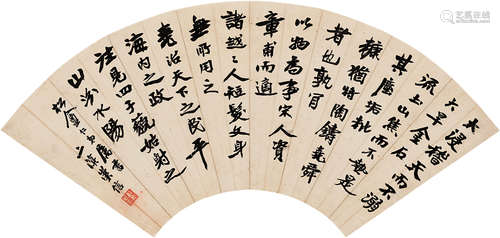 大浸稽天而不溺
大旱金石
流土山焦而不熱是
其塵垢粃
糠猶將陶鑄堯舜
者也孰肯
以物為事宋人資
章甫而適
諸越越人短髮文身
無所用之
堯治天下之民平
海內之政
往見四子藐姑射之
山汾水陽